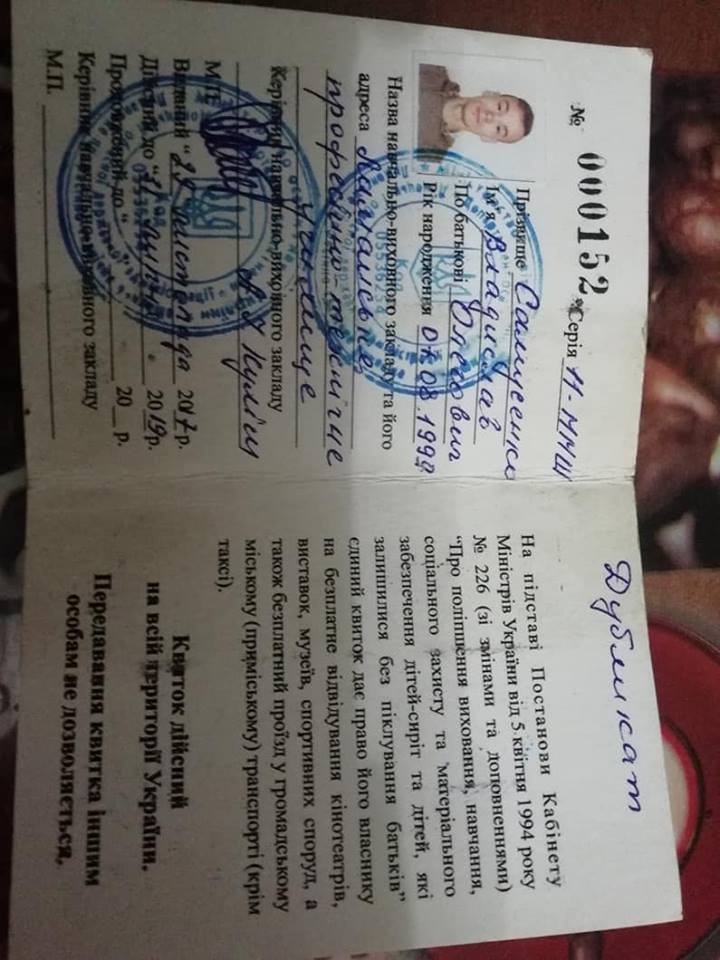 № 000152 Серія 11-ММШ
Прізвище Самусенко
Ім'я Владислав
По батькові Олегович
Рік народження 07.08.1999
Назва навчально-виховного закладу та його
адреса
професійно технічне
училище
Керівник навчально-виховного закладу
М.П.
Виданий "25" листопада 2017 р.
Дійсний до "31" 2019 р.
Продовжений до " 20 р.
Керівник навчально-виховного закладу
М.П.
Дублікат
На підставі Постанови Кабінету
Міністрів України від 5 квітня 1994 року
№ 226 (зі змінами та доповненнями)
"Про поліпшення виховання, навчання,
соціального захисту та матеріального
забезпечення дітей-сиріт та дітей, які
залишилися без піклування батьків"
єдиний квиток дає право його власнику
на безплатне відвідування кінотеатрів,
виставок, музеїв, спортивних споруд, а
також безплатний проїзд у громадському
міському (приміському) транспорті (крім
таксі).
Квиток дійсний
на всій території України.
Передавання квитка іншим
особам не дозволяється.